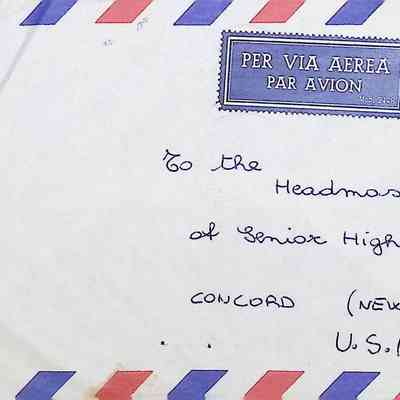 PER VIA AEREA
PAR AVION
To the
Headmas
of Senior High
CONCORD (NEW
U.S.A